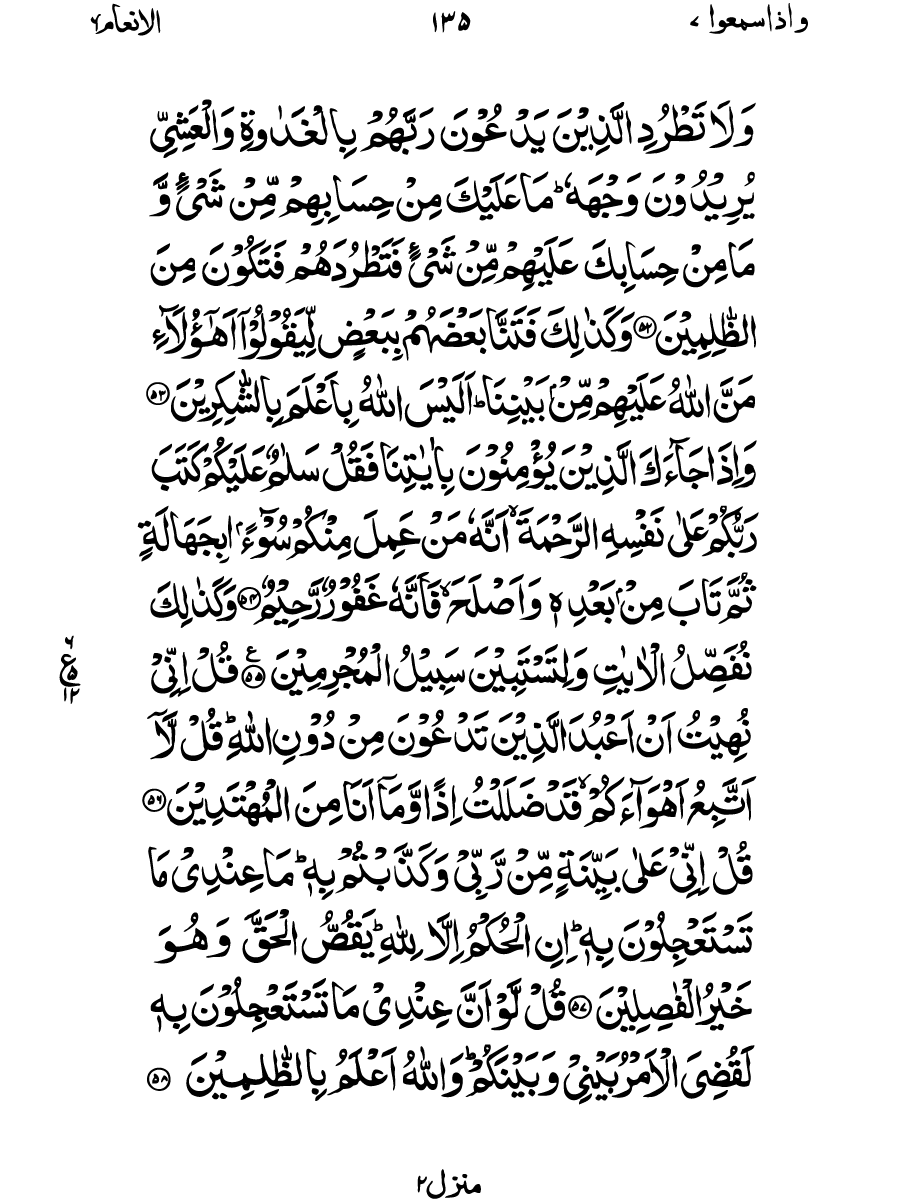 واذاسمعوا ۷ ۱۳۵ الانعام ۶
وَلَا تَطْرُدِ الَّذِيْنَ يَدْعُوْنَ رَبَّهُمْ بِالْغَدٰوةِ وَالْعَشِيِّ
يُرِيْدُوْنَ وَجْهَهٗ ؕ مَا عَلَيْكَ مِنْ حِسَابِهِمْ مِّنْ شَیْءٍ وَّ
مَا مِنْ حِسَابِكَ عَلَيْهِمْ مِّنْ شَیْءٍ فَتَطْرُدَهُمْ فَتَكُوْنَ مِنَ
الظّٰلِمِيْنَ ۝۵۲ وَكَذٰلِكَ فَتَنَّا بَعْضَهُمْ بِبَعْضٍ لِّيَقُوْلُوْۤا اَهٰۤؤُلَآءِ
مَنَّ اللّٰهُ عَلَيْهِمْ مِّنْۢ بَيْنِنَا ؕ اَلَيْسَ اللّٰهُ بِاَعْلَمَ بِالشّٰكِرِيْنَ ۝۵۳
وَاِذَا جَآءَكَ الَّذِيْنَ يُؤْمِنُوْنَ بِاٰيٰتِنَا فَقُلْ سَلٰمٌ عَلَيْكُمْ كَتَبَ
رَبُّكُمْ عَلٰی نَفْسِهِ الرَّحْمَةَ ۙ اَنَّهٗ مَنْ عَمِلَ مِنْكُمْ سُوْٓءًۢا بِجَهَالَةٍ
ثُمَّ تَابَ مِنْۢ بَعْدِهٖ وَاَصْلَحَ ۙ فَاَنَّهٗ غَفُوْرٌ رَّحِيْمٌ ۝۵۴ وَكَذٰلِكَ
نُفَصِّلُ الْاٰيٰتِ وَلِتَسْتَبِيْنَ سَبِيْلُ الْمُجْرِمِيْنَ ۝۵۵ ع قُلْ اِنِّیْ
۶ ع ۵ ۱۲
نُهِيْتُ اَنْ اَعْبُدَ الَّذِيْنَ تَدْعُوْنَ مِنْ دُوْنِ اللّٰهِ ؕ قُلْ لَّآ
اَتَّبِعُ اَهْوَآءَكُمْ ۙ قَدْ ضَلَلْتُ اِذًا وَّمَآ اَنَا مِنَ الْمُهْتَدِيْنَ ۝۵۶
قُلْ اِنِّیْ عَلٰی بَيِّنَةٍ مِّنْ رَّبِّیْ وَكَذَّبْتُمْ بِهٖ ؕ مَا عِنْدِیْ مَا
تَسْتَعْجِلُوْنَ بِهٖ ؕ اِنِ الْحُكْمُ اِلَّا لِلّٰهِ ؕ يَقُصُّ الْحَقَّ وَهُوَ
خَيْرُ الْفٰصِلِيْنَ ۝۵۷ قُلْ لَّوْ اَنَّ عِنْدِیْ مَا تَسْتَعْجِلُوْنَ بِهٖ
لَقُضِیَ الْاَمْرُ بَيْنِیْ وَبَيْنَكُمْ ؕ وَاللّٰهُ اَعْلَمُ بِالظّٰلِمِيْنَ ۝۵۸
منزل ۲